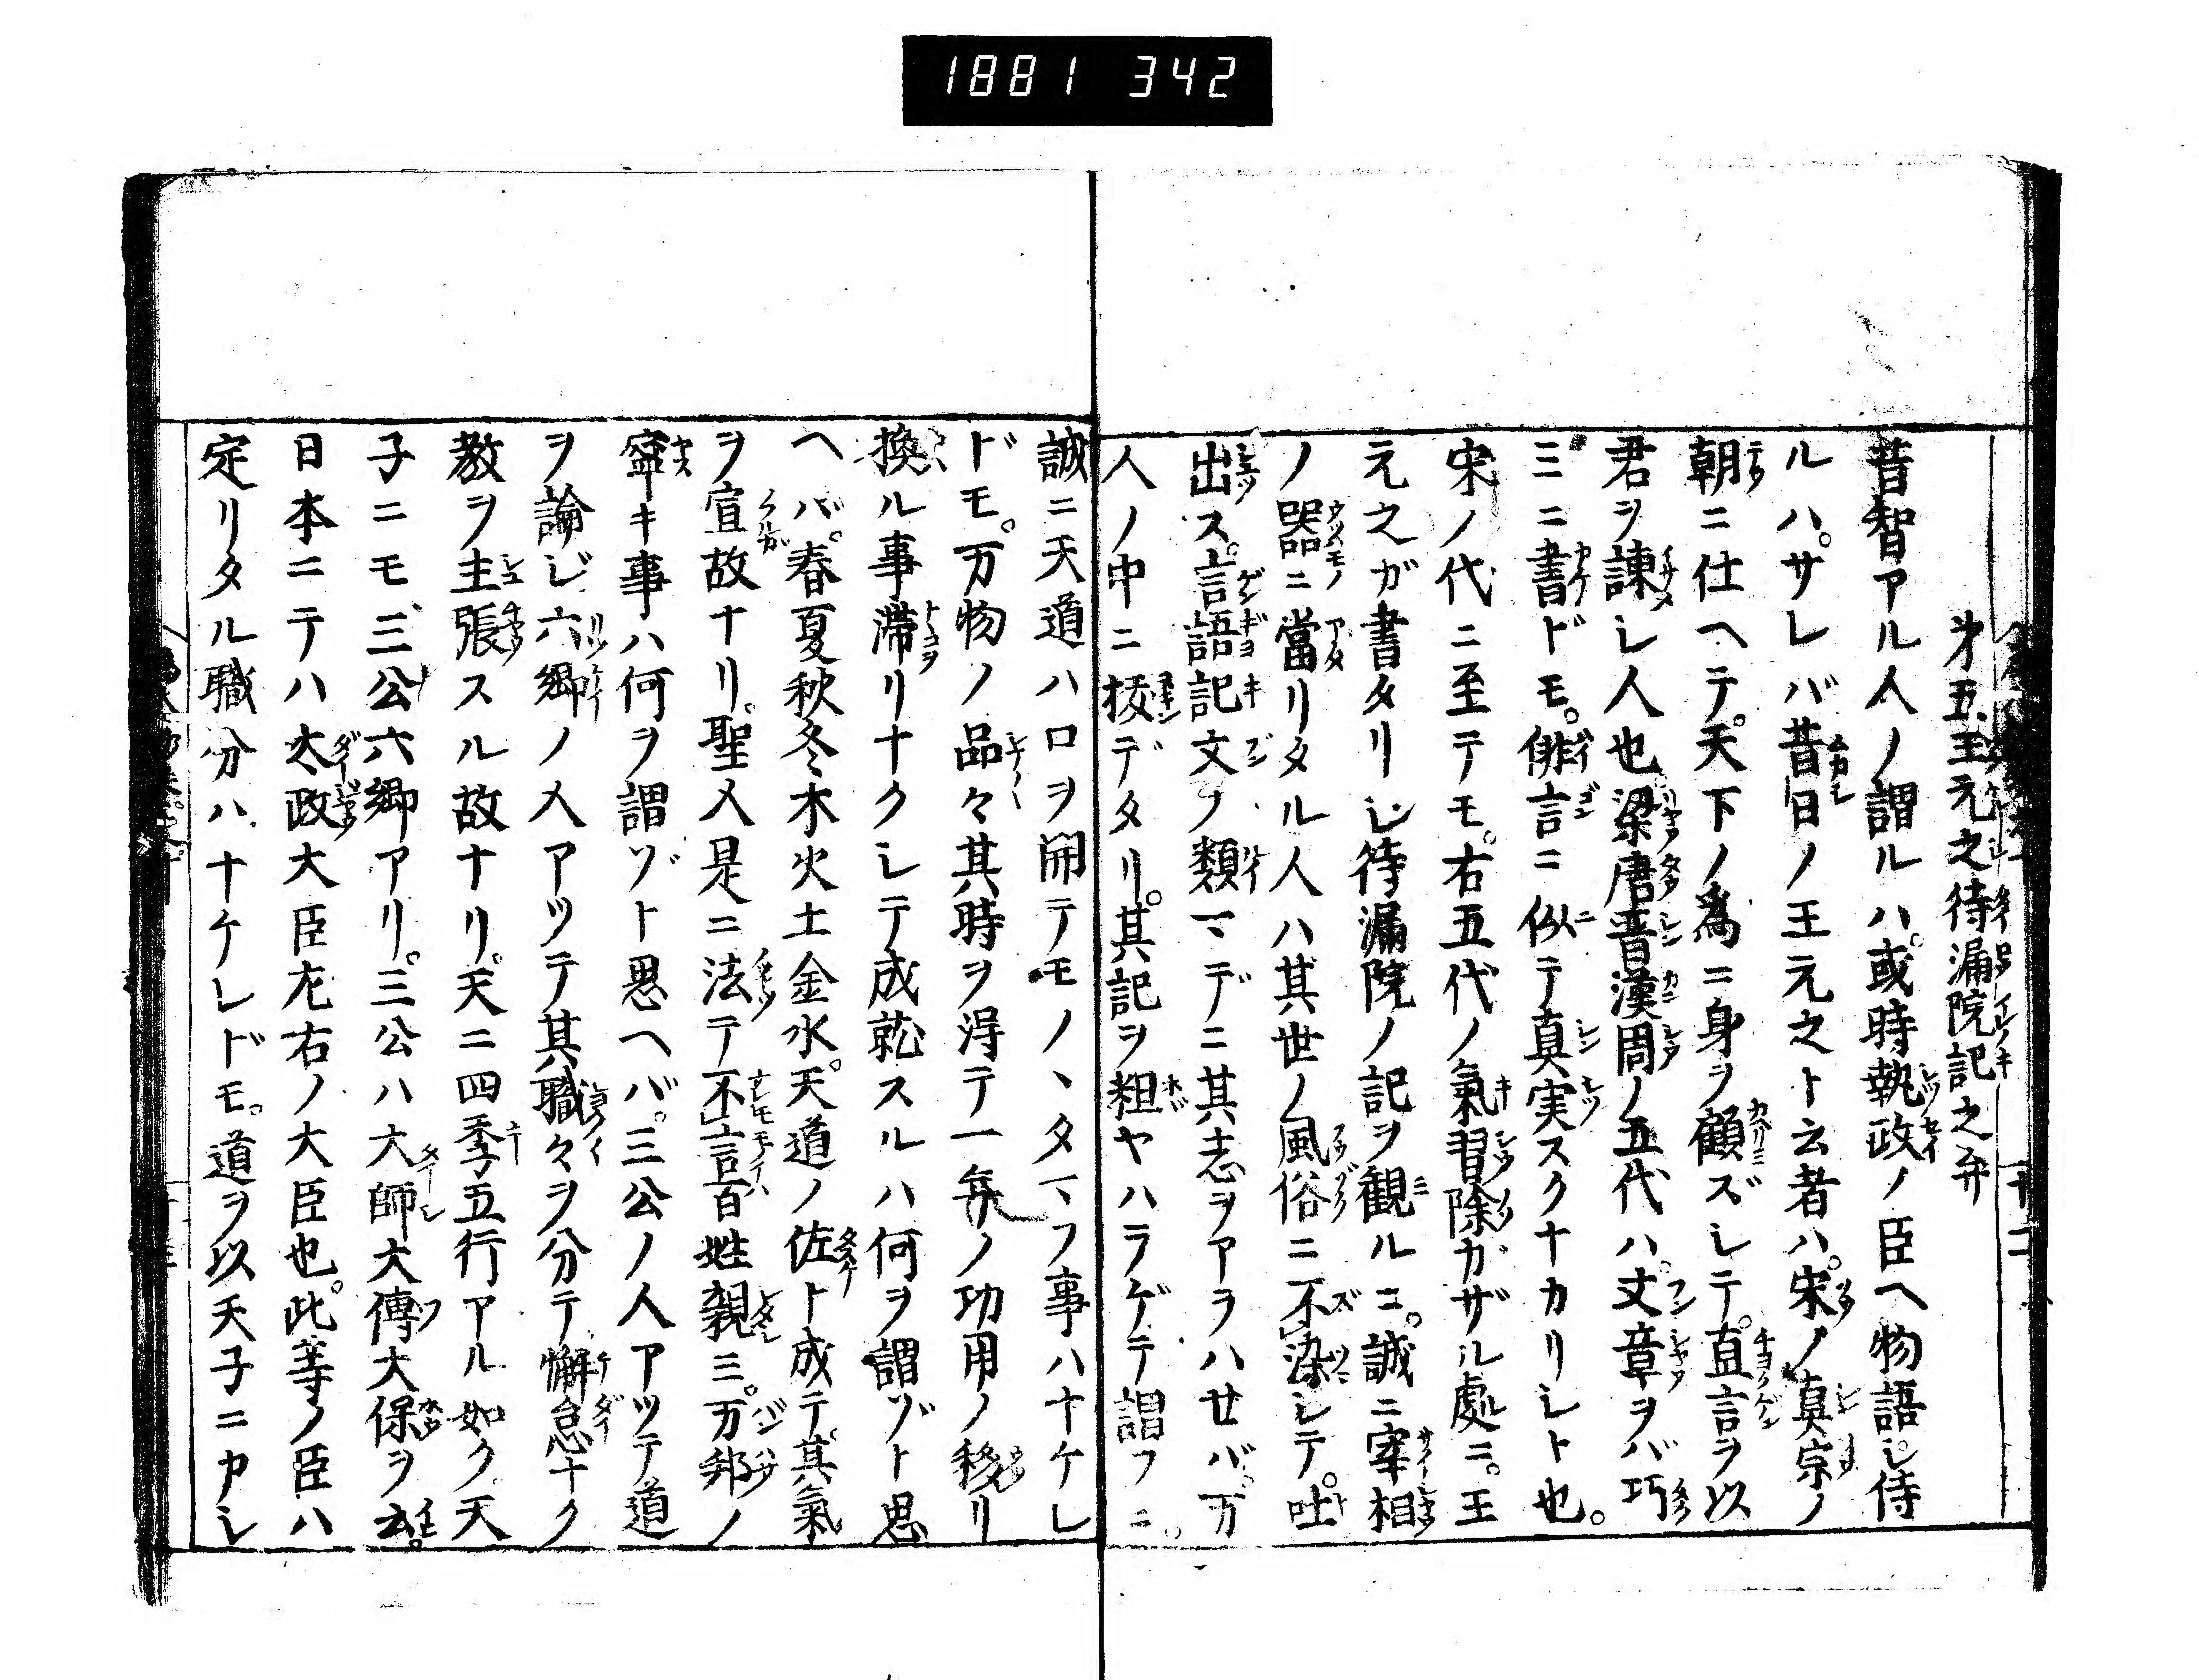 1881 342
㐧五、王元之待漏院記之弁
昔智アル人ノ謂ルハ。或時執政ノ臣ヘ物語シ侍
ルハ。サレバ昔日ノ王元之ト云者ハ。宋ノ真宗ノ
朝ニ仕ヘテ。天下ノ為ニ身ヲ顧ズシテ。直言ヲ以
君ヲ諌シ人也。梁唐晋漢周ノ五代ハ。文章ヲバ巧
ミニ書ドモ。俳言ニ似テ真実スクナカリシト也。
宋ノ代ニ至テモ。右五代ノ氣習除カザル處ニ。王
元之ガ書タリシ待漏院ノ記ヲ観ルニ。誠ニ宰相
ノ器ニ當リタル人ハ其世ノ風俗ニ不染シテ。吐
出ス。言語記文ノ類マデニ其志ヲアラハセバ。万
人ノ中ニ抜デタリ。其記ヲ粗ヤハラゲテ謂フニ。
誠ニ天道ハ口ヲ開テモノヽタマフ事ハナケレ
ドモ。万物ノ品々其時ヲ得テ一年ノ功用ノ移リ
換ル事滞リナクシテ成就スルハ何ヲ謂ゾト思
ヘバ。春夏秋冬木火土金水。天道ノ佐ト成テ。其氣
ヲ宣故ナリ。聖人是ニ法テ不言百姓親ミ。万邦ノ
寧キ事ハ何ヲ謂ゾト思ヘバ。三公ノ人アツテ道
ヲ論ジ六郷ノ人アツテ其職々ヲ分テ懈怠ナク
教ヲ主張スル故ナリ。天ニ四季五行アル如ク。天
子ニモ、三公六郷アリ。三公ハ大師大傳大保ヲ云。
日本ニテハ太政大臣左右ノ大臣也。此等ノ臣ハ
定リタル職分ハ、ナケレドモ。道ヲ以天子ニヤシ